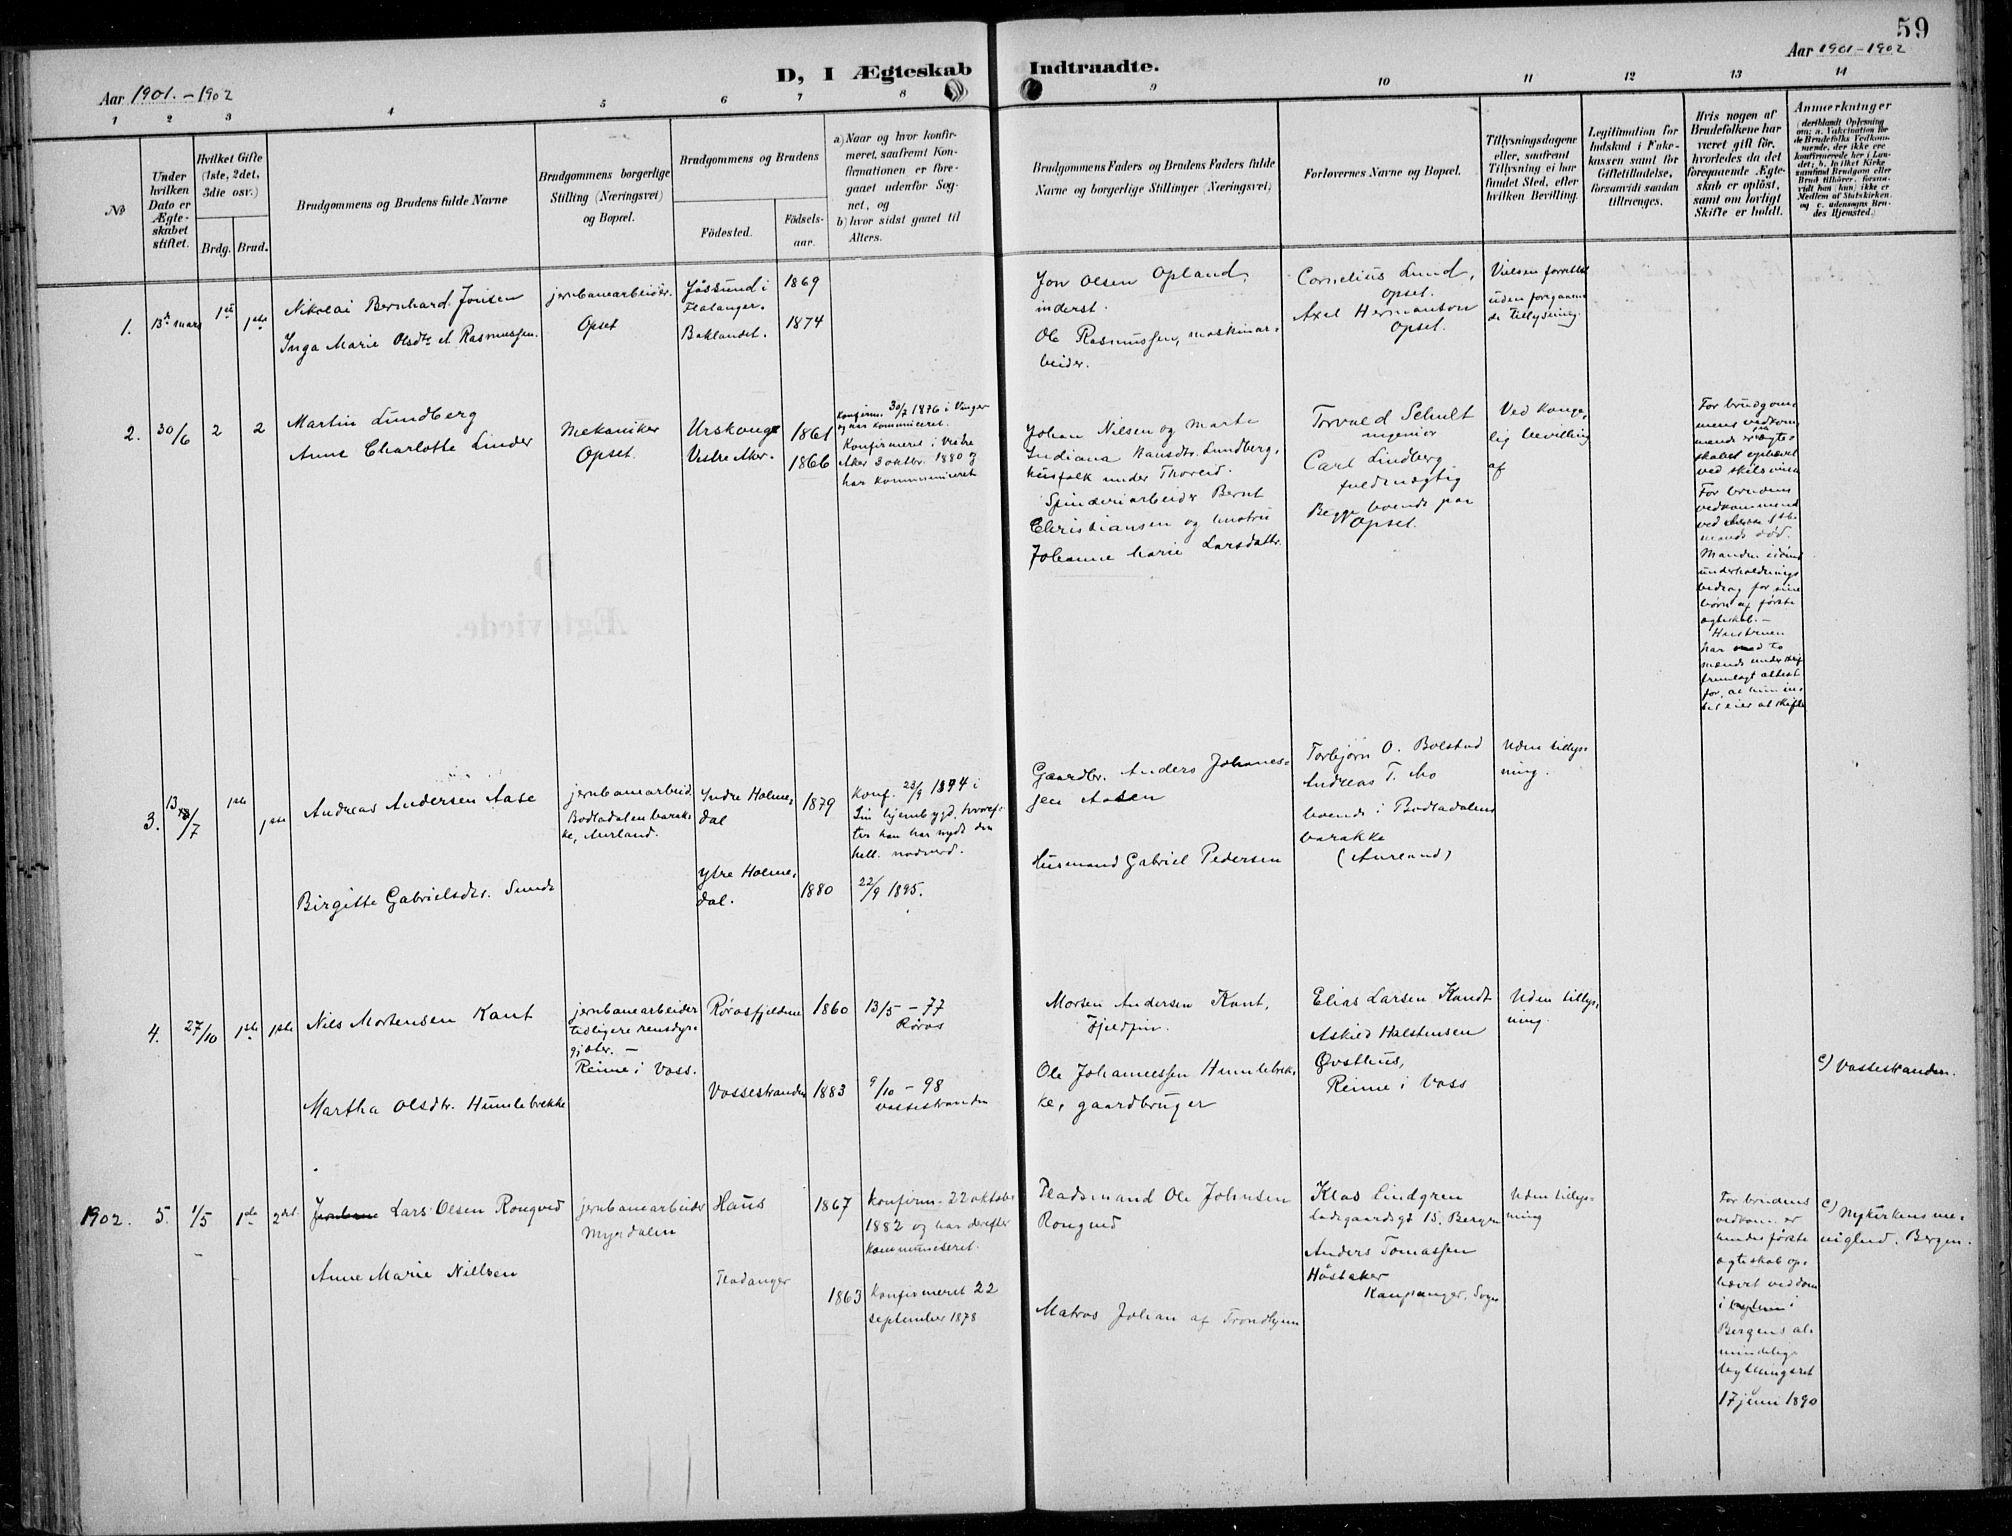 59
D, I Ægteskab Indtraadte.
Aar 1901. - 1902
Aar 1901 - 1902
1 2 3 4 5 6 7 8 9 10 11 12 13 14
No
Under hvilken Dato er Ægteskabet stiftet.
Hvilket Gifte (1ste, 2det, 3die osv.)
Brdg. Brud.
Brudgommens og Brudens fulde Navne
Brudgommens borgerlige Stilling (Næringsvei) og Bopæl.
Brudgommens og Brudens
Fødested. Fødsels-aar.
a) Naar og hvor konfirmeret, saafremt Konfirmationen er foregaaet udenfor Sognet, og
b) hvor sidst gaaet til Alters.
Brudgommens Faders og Brudens Faders fulde Navne og borgerlige Stillinger (Næringsvei)
Forlovernes Navne og Bopæl.
Tillysningsdagene eller, saafremt Tillysning ei har fundet Sted, efter hvilken Bevilling.
Legitimation for Indskud i Enkekassen samt for Giftetilladelse, forsaavidt saadan tiltrænges.
Hvis nogen af Brudefolkene har været gift før, hvorledes da det foregaaende Ægteskab er opløst, samt om lovligt Skifte er holdt.
Anmerkninger
(deriblandt Oplysning om: a. Vakcination for de Brudefolks Vedkommende, der ikke ere konfirmerede her i Landet; b. hvilket Kirkesamfund Brudgom eller Brud tilhører, forsaavidt han (hun) ikke er Medlem af Statskirken, og c. udensogns Brudes Hjemsted.)
1. 13de mars 1ste 1ste
Nikolai Bernhard Jonsen
Inga Marie Olsdtr. Rasmussen.
jernbanearbeider.
Opset
Jøssund i
Flatanger.
Baklandet.
1869
1874
Jon Olsen Opland,
inderst.
Ole Rasmussen, maskinar-
beider.
Cornelius Lund,
Opset.
Axel Hermanson
Opset.
Vielsen forrettet
uden foregaaen-
de tillysning.
2. 30/6 2 2
Martin Lundberg
Anne Charlotte Linder
Mekaniker
Opset.
Urskoug
Vestre Aker.
1861
1866
Konfirm. 30/7 1876 i Vinger
og har kommuniceret.
Konfirmeret i Vestre
Aker 3 oktbr. 1880 og
har kommuniceret
Johan Nilsen og Marte
Indiana Hansdtr. Lundberg,
husfolk under Thoreid.
Spinderiarbeider Bernt
Christiansen og hustru
Johanne Marie Larsdatter.
Torvald Schult
ingeniør
Carl Lindberg
fuldmægtig
Begge boende paa
Opset.
Ved konge-
lig bevilling
af
For brudgom-
mens vedkom-
mende er ægte-
skabet ophævet
ved skilsmisse
For brudens
vedkommende
ved første
mands død.
Manden
underholdnings
bidrag for sine
børn af første
ægteskab. -
Hustruen
har med to
mænds underskrift
fremlagt attest
for, at hun in-
tet eier at skifte
3. 13/7 1ste 1ste
Andreas Andersen Aase
Birgitte Gabrielsdtr. Sunde
jernbanearbeid.
Bodladalen barak-
ke, Aurland.
Indre Holme-
dal
Ytre Holme-
dal.
1879
1880
Konf. 23/9 1894 i
sin hjembygd, hvoref-
ter han har nydt den
hell. nadverd.
22/9 1895.
Gaardbr. Anders Johannes-
sen Aasen
Husmand Gabriel Pedersen
Torbjørn O. Bolstad
Andreas T. Mo
boende i Bodladalens
barakke
(Aurland)
Uden tillys-
ning.
4. 27/10 1ste 1ste
Nils Mortensen Kant
Martha Olsdtr. Humlebrekke
jernbanearbeider
tidligere rensdyrs-
gjæter. -
Reime i Voss.
Rørosfjeldene
Vossestranden
1860
1883
13/5 - 77
Røros
9/10 - 98
Vossestranden
Morten Andersen Kant,
Fjeldfin.
Ole Johannessen Humlebrek-
ke, gaardbruger
Elias Larsen Kandt
Askild Halstensen
Øvsthus,
Reime i Voss
Uden tillys-
ning.
c) Vossestranden.
1902. 5. 1/5 1ste 2det
Lars Olsen Rongved
Anne Marie Nillsen
jernbanearbeider
Myrdalen
Haus
Fladanger
1867
1863
Konfirm. 22 oktober
1882 og har derefter
kommuniceret.
Konfirmeret 22
september 1878
Pladsmand Ole Johnsen
Rongved
Matros Johan af Trondhjem
Klas Lindgren
Ladegaardsgt 15, Bergen
Anders Tomassen
Høstaker
Kaupanger, Sogn
Uden tillys-
ning
For brudens
vedkom. er
hendes første
ægteskab op-
hævet ved dom
i
Bergens al-
mindelige
17 juni 1890
c) Nykirkens me-
nighed. Bergen.